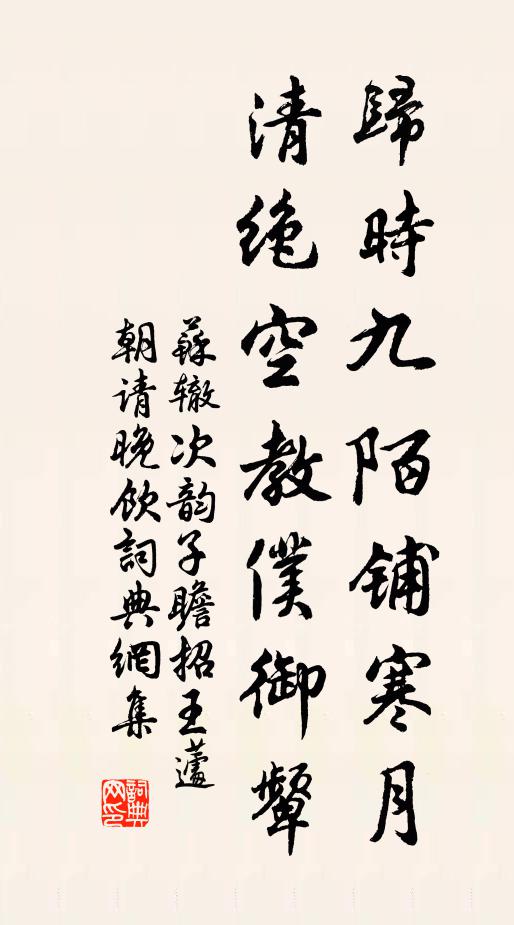 歸時九陌鋪寒月
清絕空教僕御顰
蘇轍次韵子瞻招王蘧
朝請晚飲詞典網集
詞典
网印